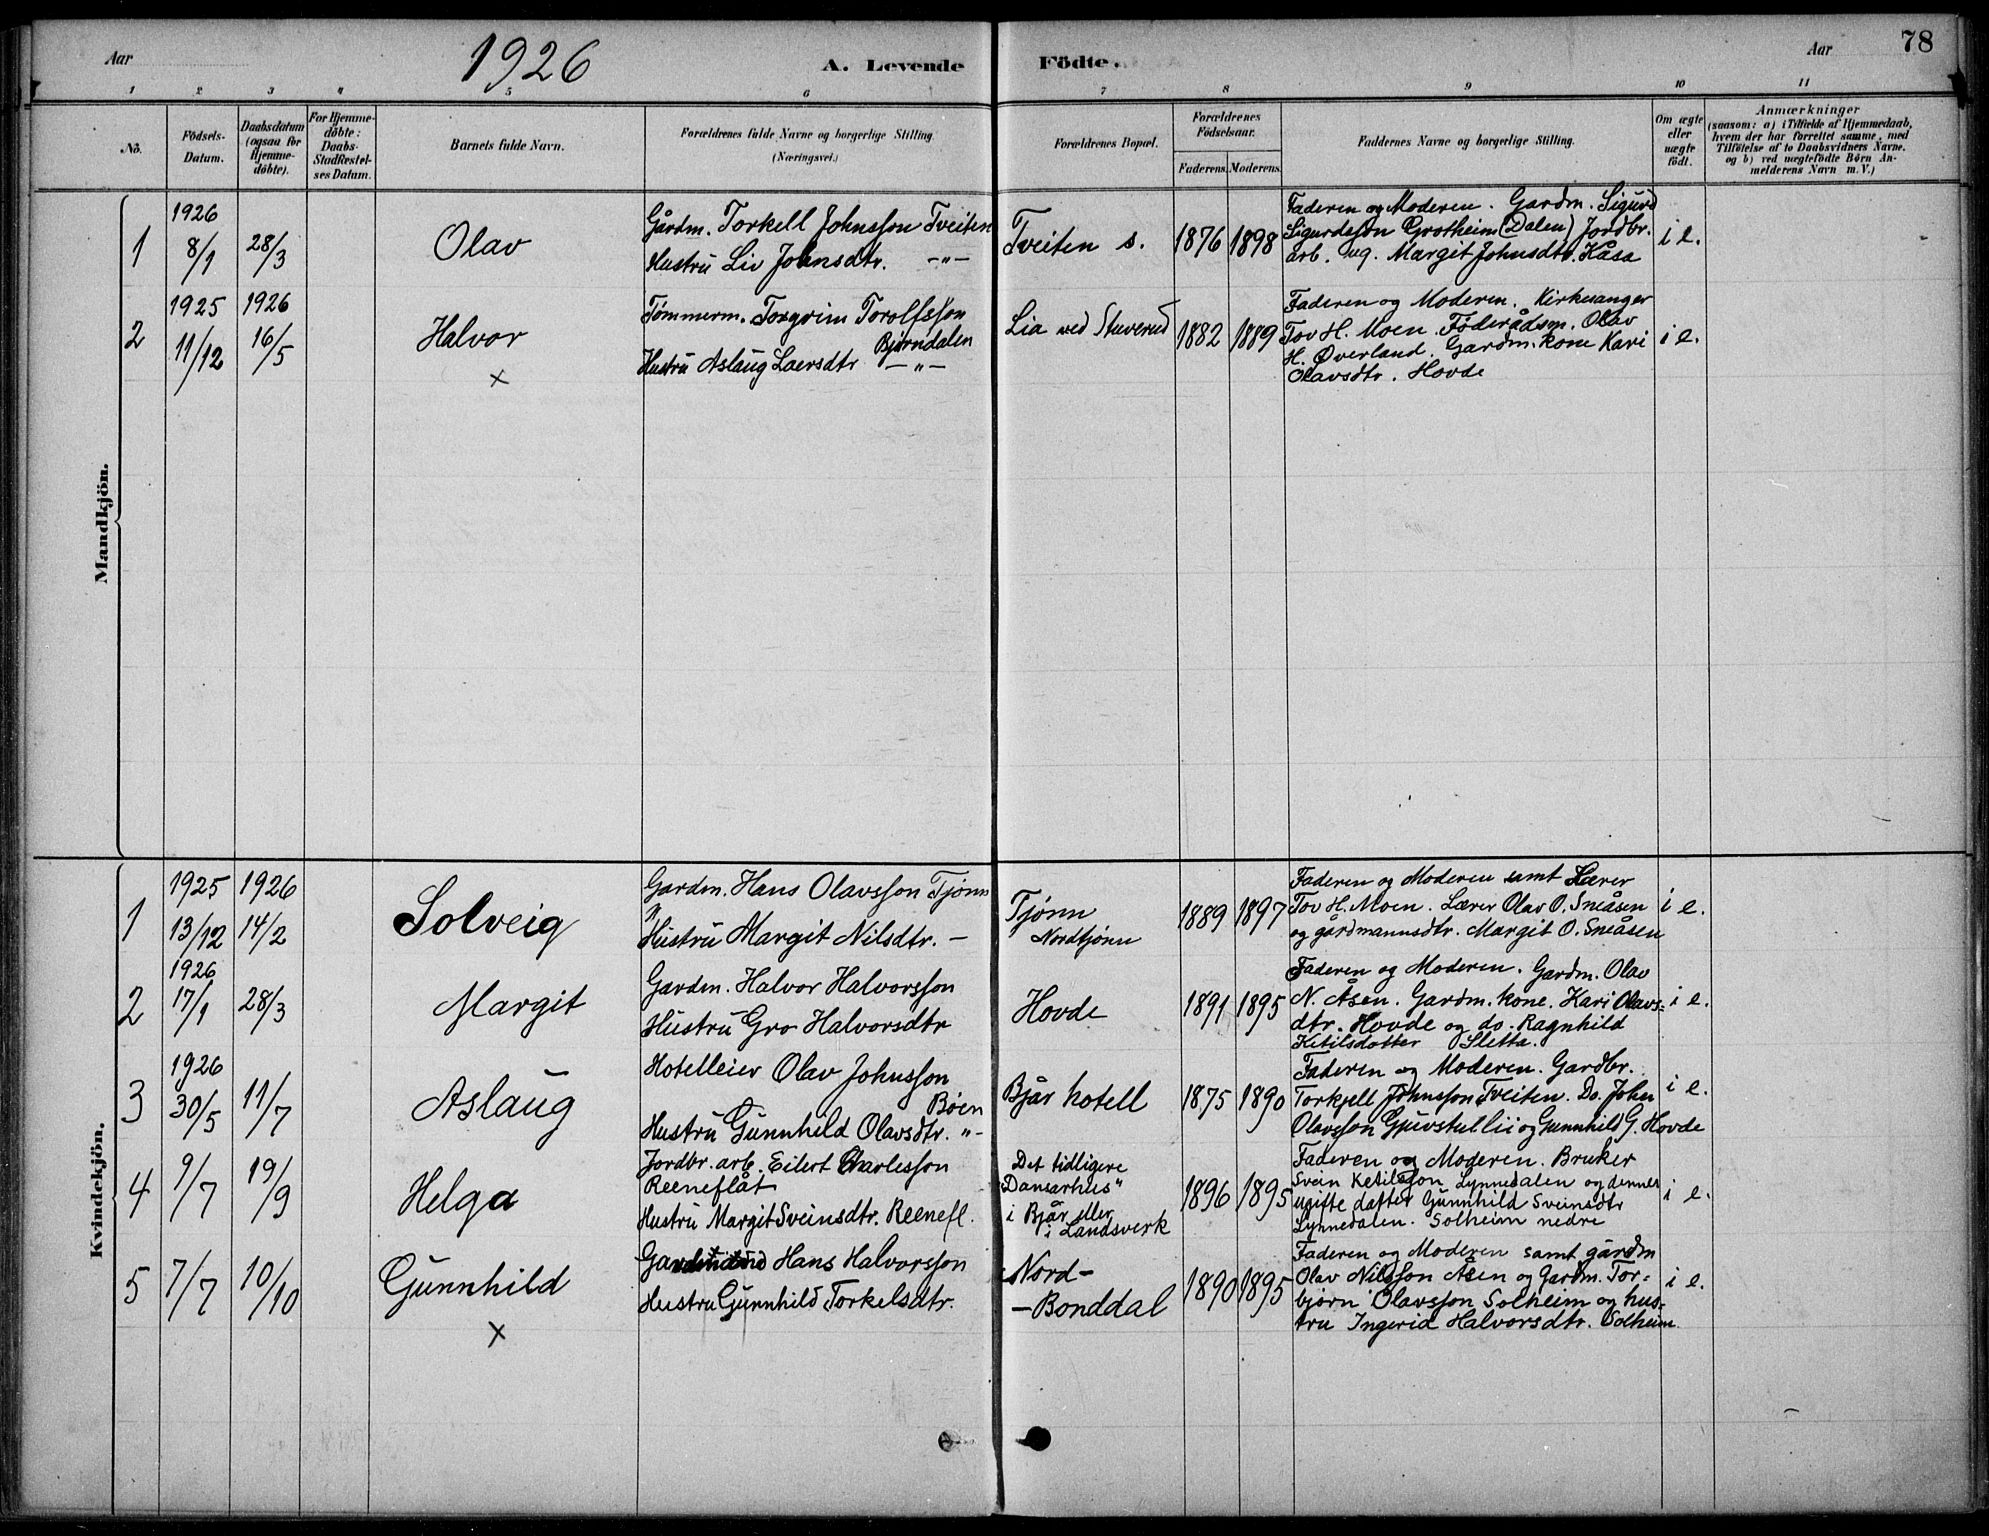 Aar
1926
A. Levende
Födte.
Aar
78
1
2
3
4
5
6
7
8
9
10
11
No.
Födsels-
Datum.
Daabsdatum
(ogsaa for
Hjemme-
döbte).
For Hjemme-
döbte:
Daabs-
Stadfæstel-
ses Datum.
Barnets fulde Navn.
Forældrenes fulde Navne og borgerlige Stilling.
(Næringsvei.)
Forældrenes Bopæl.
Forældrenes
Födselsaar.
Faderens.
Moderens.
Faddernes Navne og borgerlige Stilling.
Om ægte
eller
uægte
födt.
Anmærkninger
(saasom: a) i Tilfælde af Hjemmedaab,
hvem der har forrettet samme, med
Tilföielse af to Daabsvidners Navne.
og b) ved uægtefödte Börn An-
melderens Navn m.V.)
Mandkjön.
1
1926
8/1
28/3
Olav
Gårdm. Torkell Johnsson Tveiten
Hustru Liv Johnsdtr. -"-
Tveiten s.
1876
1898
Faderen og Moderen. Gardm. Sigurd
Sigurdsson Grotheim (Dalen) Jordbr.
arb. ug. Margit Johnsdtr. Kåsa
i e.
2
1925
11/12
1926
16/5
Halvor
x
Tømmerm. Torgrim Torolfsson
Bjørndalen
Hustru Aslaug Laersdtr -"-
Lia ved Stuverud
1882
1889
Faderen og Moderen. Kirkesanger
Tov H. Moen. Föderådsm. Olav
H. Øverland. Gardm. kone Kari
Olavsdtr. Hovde
i e.
Kvindekjön.
1
1925
13/12
1926
14/2
Solveig
Gardm. Hans Olavsson Tjønn
Hustru Margit Nilsdtr. -"-
Tjønn
Nordtjønn
1889
1897
Faderen og Moderen samt Lærer
Tov H. Moen. Lærer Olav O. Sneåsen
og gårdmannsdtr. Margit O. Sneåsen
i e.
2
1926
17/1
28/3
Margit
Gardm. Halvor Halvorsson
Hustru Gro Halvorsdtr
Hovde
1891
1895
Faderen og Moderen. Gardm. Olav
N. Åsen. Gardm. kone. Kari Olavs-
dtr. Hovde og do. Ragnhild
Ketilsdotter Sletta.
i e.
3
1926
30/5
11/7
Aslaug
Hotelleier Olav Johnsson
Bøen
Hustru Gunnhild Olavsdtr. "-
Bjår hotell
1875
1890
Faderen og Moderen. Gardbr.
Torkjell Johnsson Tveiten. Do. John
Olavsson Gjuvstul lii og Gunnhild G. Hovde
i e.
4
9/7
19/9
Helga
Jordbr. arb. Eilert Charlesson
Reeneflåt
Hustru Margit Sveinsdtr. Reenefl.
Det tidligere
"Dansarhus"
i Bjår eller
i Landsverk
1896
1895
Faderen og Moderen. Bruker
Svein Ketilsson Lynnedalen og dennes
ugifte datter Gunnhild Sveinsdtr
Lynnedalen. Solheim nedre
i e.
5
7/7
10/10
Gunnhild
x
Hans Halvorsson
Hustru Gunnhild Torkelsdtr.
Nord-
-Bonddal
1890
1895
Faderen og Moderen samt gårdm
Olav Nilsson Åsen og Gardm. Tor-
bjørn Olavsson Solheim og hus-
tru Ingerid Halvorsdtr. Solheim
i e.